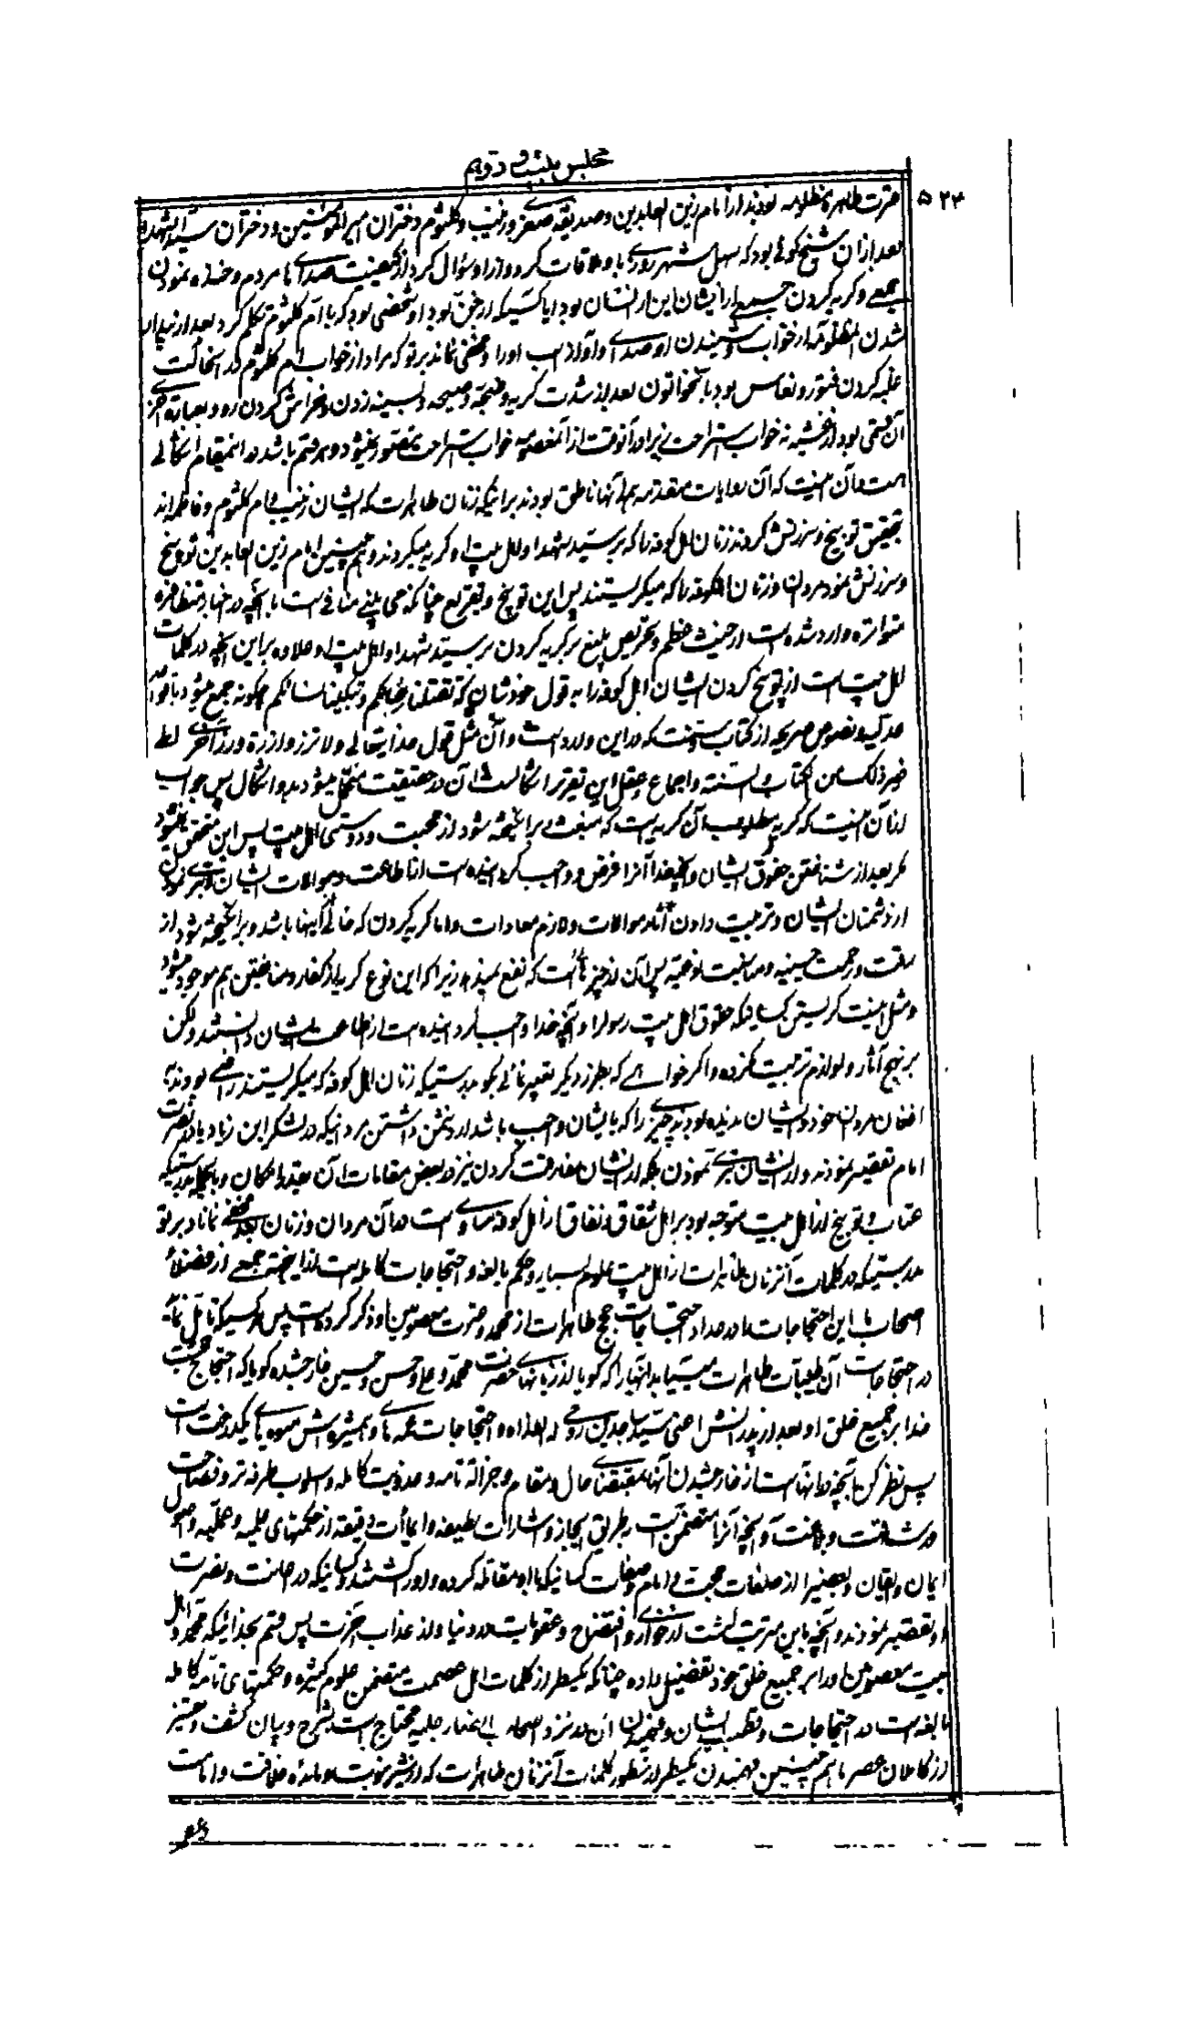 مجلس بیست و دویم
۵۲۳
حضرت طاهره مظلومه بودند از امام زین العابدین و صدیقه صغری و زینب و کلثوم دختران امیر المؤمنین و دختران سید الشهدا
بعد ازان شیخ کوفی بود که سهل شهرزوری با او ملاقات کرد و از او سؤال کرد از کیفیت صدای با مردم و خنده نمودن
جمعی و گریه کردن جمیعی از ایشان این از انسان بود یا کسیکه از جن بود او شخصی بود که با ام کلثوم تکلم کرد بعد از بیدار
شدن از خواب و شنیدن او صدای و آواز اورا و مخفی نماند بر تو که مراد از خواب ام کلثوم در انحالت
غلبه کردن فتور و نعاس بود بآنخاتون بعد از شدت گریه و ضجه و صیحه و بسینه زدن و خراش کردن رو و بعبارة اخری
آن قسمی بود از غشیه نه خواب استراحت زیرا در آنوقت از آنمعصومه خواب استراحت متصور نمیشود باشد در اینمقام اشکالی
هست و آن اینست که آن روایات متقدمه همه آنها ناطق بودند برانیکه زنان طاهرات که ایشان زینب و ام کلثوم و فاطمه اند
بتحقیق توبیخ و سرزنش کردند زنان اهل کوفه را که بر سید شهدا و اهل بیت او گریه میکردند و همچنین امام زین العابدین توبیخ
و سرزنش نمود مردان و زنان اهلکوفه را که میگریستند پس این توبیخ و تقریع چنانکه می بینی منافی ست با آنچه در اخبار متظافره
متواتره وارد شده است از حیثیت عظم و تحریص بلیغ بر گریه کردن بر سید شهدا و اهل بیت او علاوه براین آنچه در کلمات
اهل بیت است از توبیخ کردن ایشان اهل کوفه را به قول خودشان که تقتلنا رجالکم و تبکینا نسائکم چگونه جمع میشود با قواعد
عدلیه و نصوص صریحه از کتاب و سنت که در این وارد است و آن مثل قول خدایتعالی ولا تزر وازرة وزر اخری الی
غیر ذلک من الکتاب و السنة و اجماع و عقل این تقریر اشکالست و آن در حقیقت منحل میشود بدو اشکال پس جواب
از آن اینست که گریه مطلوب آن گریه است که منبعث و برانگیخته شود از محبت و دوستی اهل بیت پس این متحقق نمیشود
مگر بعد از شناختن حقوق ایشان و آنچه خدا آنرا فرض و واجب گردانیده است از اطاعت و موالات ایشان و تبری نمودن
از دشمنان ایشان و ترتیب دادن آثار موالات و لازم معادات و اما گریه کردن که خالی از اینها باشد و برانگیخته شود از
رقت و رحمت جنسیه و مناسبت نوعیه پس آن از چیزی است که نفع نمیدهد زیرا که این نوع گریه از کفار و منافقین هم موجود میشود
و مثل اینست گریستن کسانیکه حقوق اهل بیت رسول را و آنچه خدا واجب گردانیده است از اطاعت ایشان دانستند ولکن
بر نهج آثار و لوازم ترتیب نکرده و اگر خواهی که بطرز دیگر تعبیر نمائی بگو بدرستیکه زنان اهل کوفه که میگریستند راضی بودند به
افعال مردان خود و ایشان ندیده بودند چیزی را که بایشان واجب باشد از دشمن داشتن مردانیکه در لشکر ابن زیاد یا در نصرت
امام تقصیر نمودند و از ایشان تبری نمودن بلکه از ایشان مفارقت کردن نیز در بعض مقامات از آن بقدر امکان و بالجمله بدرستیکه
عتاب و توبیخ از اهل بیت متوجه بود بر اهل شقاق و نفاق از اهل کوفه مساوی است در آن مردان و زنان بعد مخفی نماناد بر تو
بدرستیکه در کلمات آنزنان طاهرات از اهل بیت علوم بسیار و حکم بالغه و احتجاجات کامله است لذا جمعی از فضلای
اصحاب ما این احتجاجات را در عداد احتجاجات حجج طاهرات از محمد و عترت معصومین او ذکر کرده است پس هر کسیکه تأمل نماید
در احتجاجات آن طیبات طاهرات مییابد آنها را که گویا از زبانهای حضرت محمد و علی و حسن و حسین خارج شده گویا که احتجاج حجت
خدا بر جمیع خلق او بعد از پدرانش اعنی سید الساجدین روحی له الفداء و احتجاجات عمه های و همشیره اش میوه های یکدرخت است
پس نظر کن بآنچه در آنهاست از خارج شدن آنها بمقتضای حال و مقام و جزالة تامه و عذوبت کامله و اسلوب طرفه تر و فصاحت
و رشاقت و بلاغت و آنچه آنرا متضمن است بطریق ایجاز و اشارات لطیفه و ایمائات دقیقه از حکمتهای علمیه و عملیه و اصول
ایمان و ایقان و بعضی را از صفات حجت و امام و صفات کسانیکه با او مقاتله کرده و او را کشتند و کسانیکه در اعانت و نصرت
او تقصیر نمودند و آنچه باین مترتب گشت از خواری و افتضاح و عقوبات در دنیا و از عذاب آخرت پس قسم بخدائیکه محمد و اهل
بیت معصومین او را بر جمیع خلق خود تفضیل داده چنانکه یکسطر از کلمات اهل عصمت متضمن علوم کثیره و حکمتهای تامه کامله
بالغه است در احتجاجات و خطب ایشان و فهمیدن آن در نزد اصحاب انظار جلیه محتاج است بشرح و بیان کشف و تفسیر
از کاملان عصر ما هم چنین فهمیدن یکسطر از سطور کلمات آنزنان طاهرات که از نشر نبوت و مائده خلافت و امامت